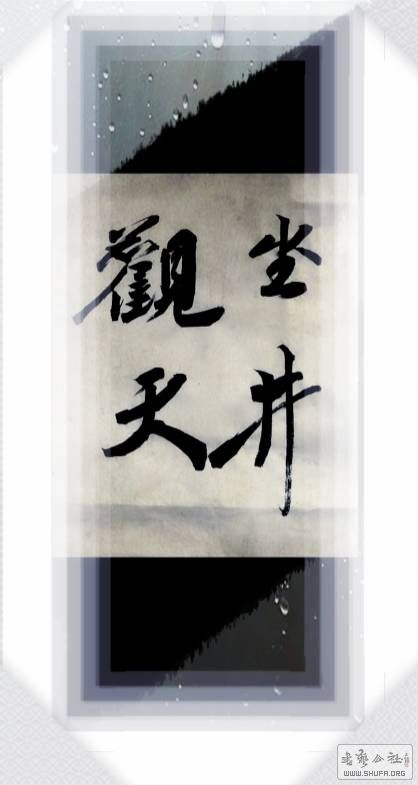 坐井
觀天
書藝公社
WWW.SHUFA.ORG